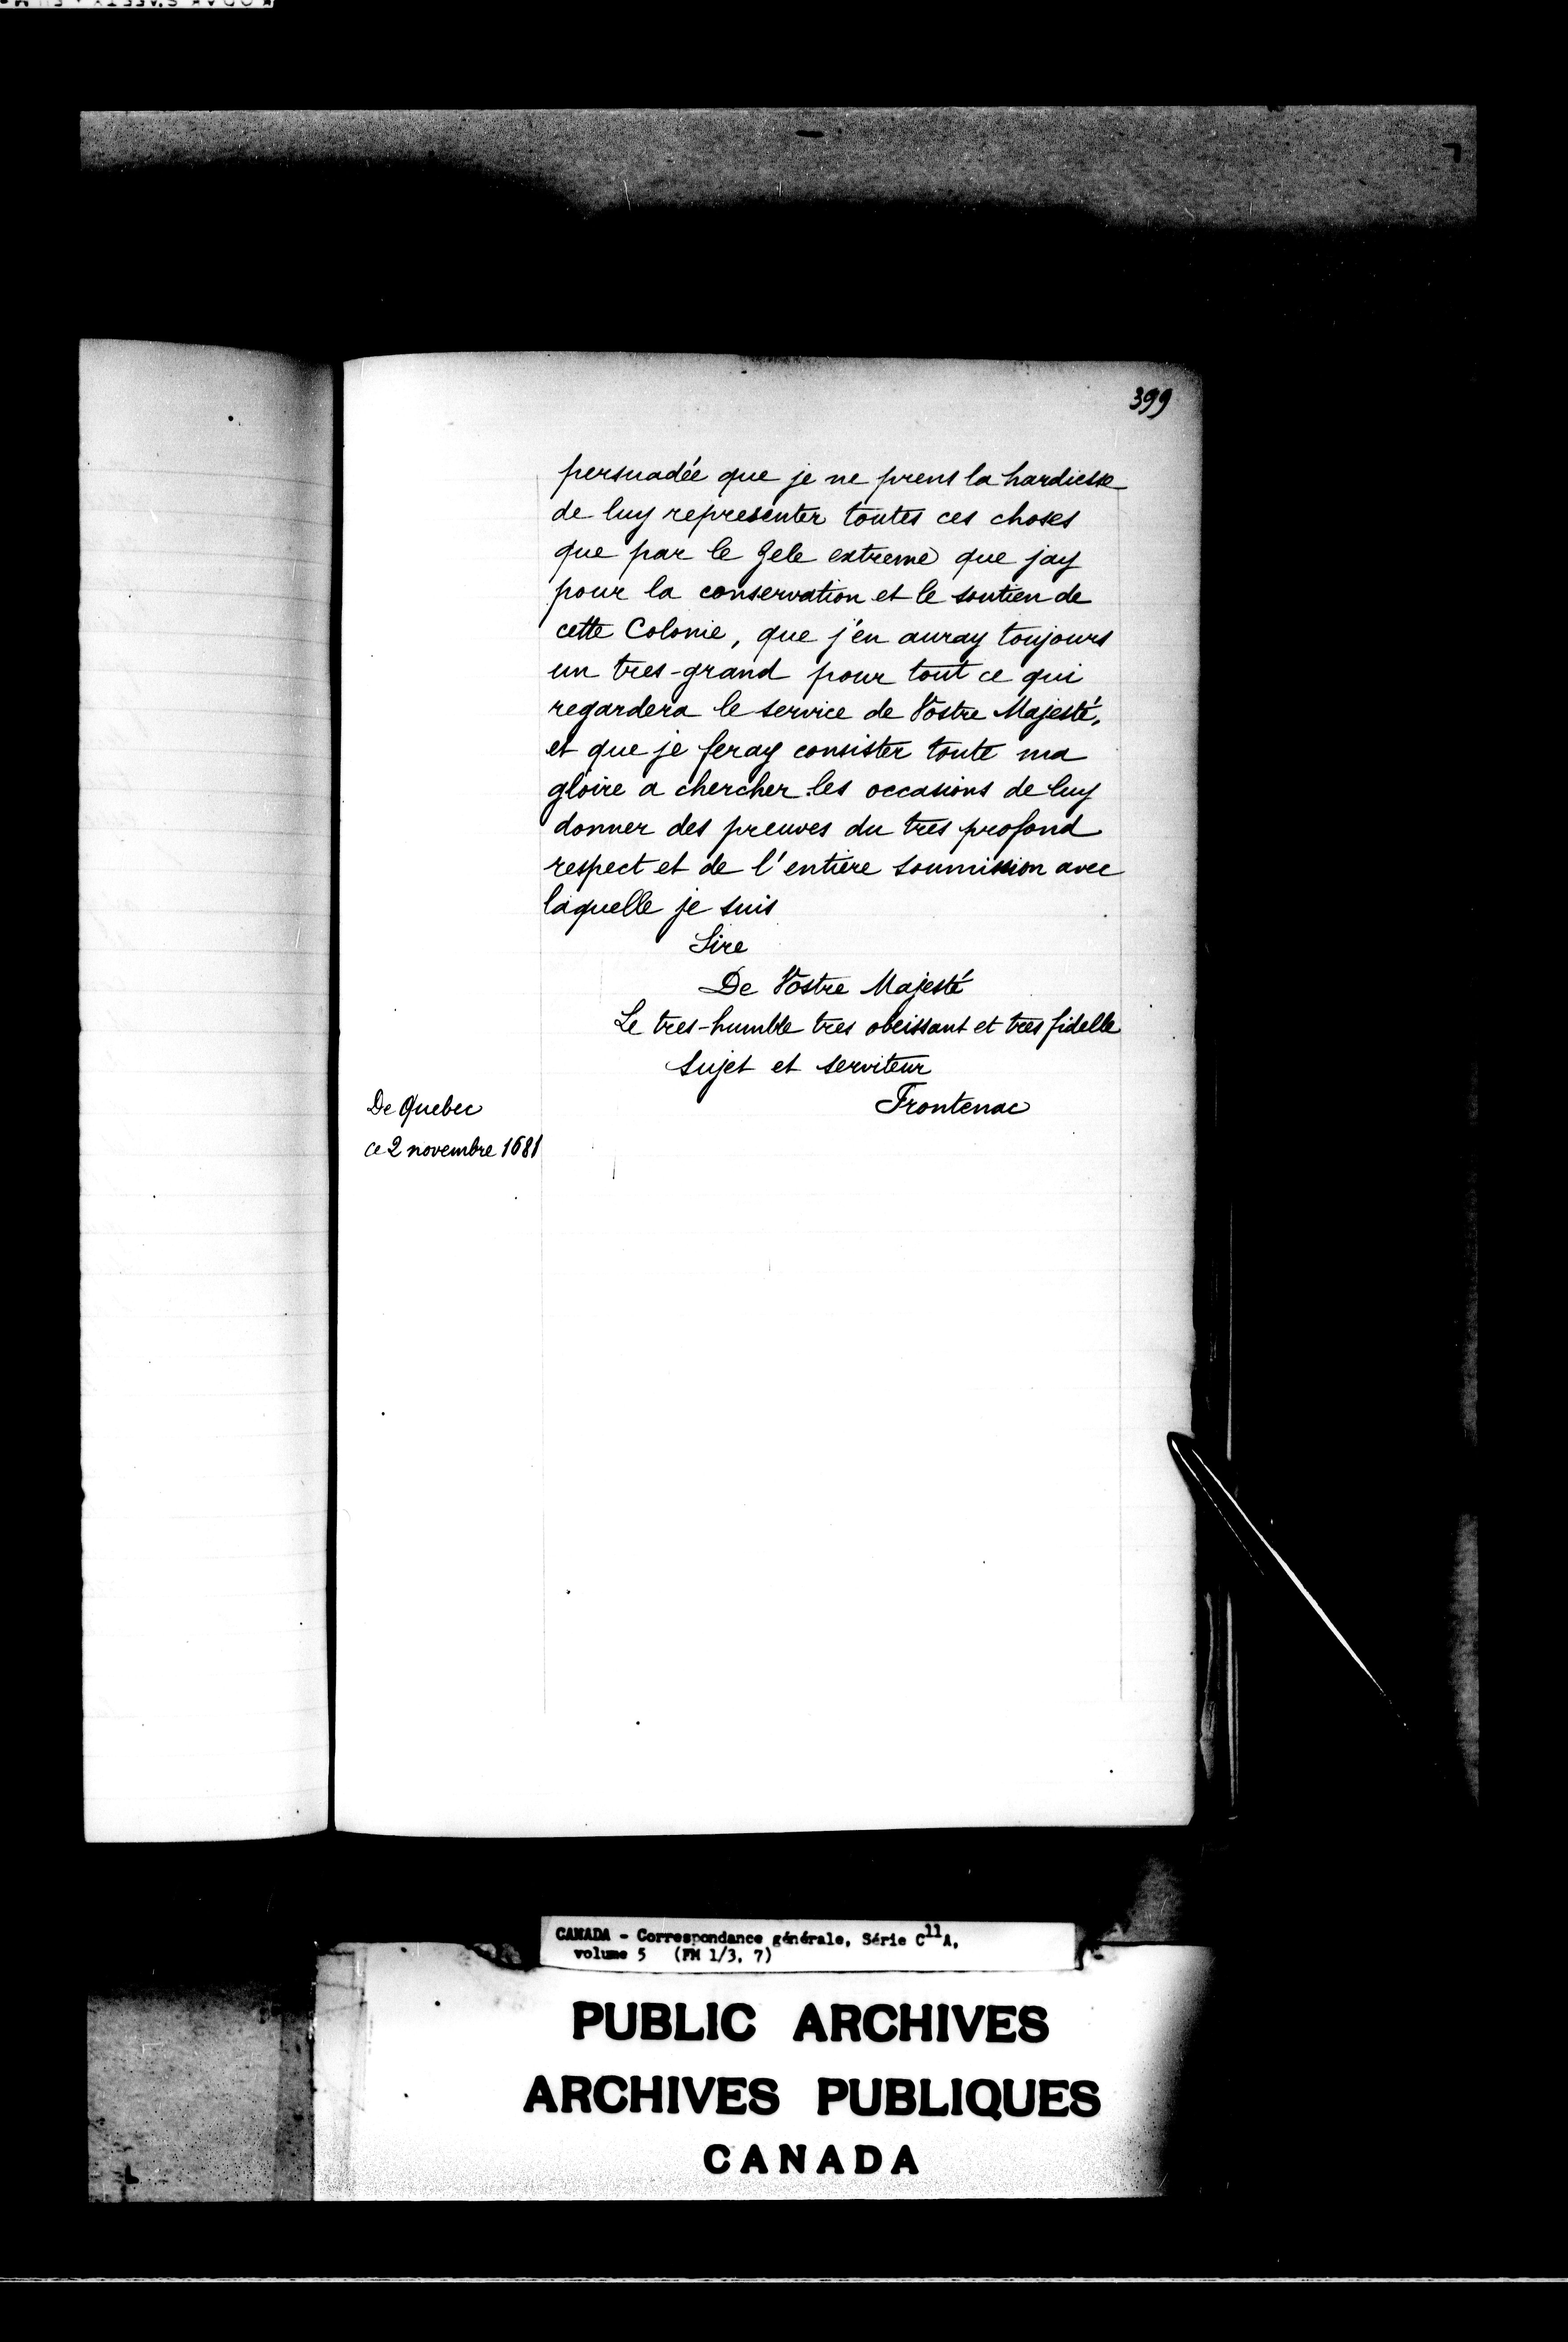 399
persuadée que je ne prens la hardiesse
de luy representer toutes ces choses
que par le zele extreme que jay
pour la conservation et le soutien de
cette Colonie, que j'en auray toujours
un tres-grand pour tout ce qui
regardera le service de Vostre Majesté,
et que je feray consister toute ma
gloire a chercher les occasions de luy
donner des preuves du tres profond
respect et de l'entiere soumission avec
laquelle je suis
Sire
De Vostre Majesté
Le tres-humble tres obeissant et tres fidelle
sujet et serviteur
Frontenac
De Quebec
ce 2 novembre 1681
CANADA - Correspondance générale, Série C11A,
volume 5 (FM 1/3, 7)
PUBLIC ARCHIVES
ARCHIVES PUBLIQUES
CANADA